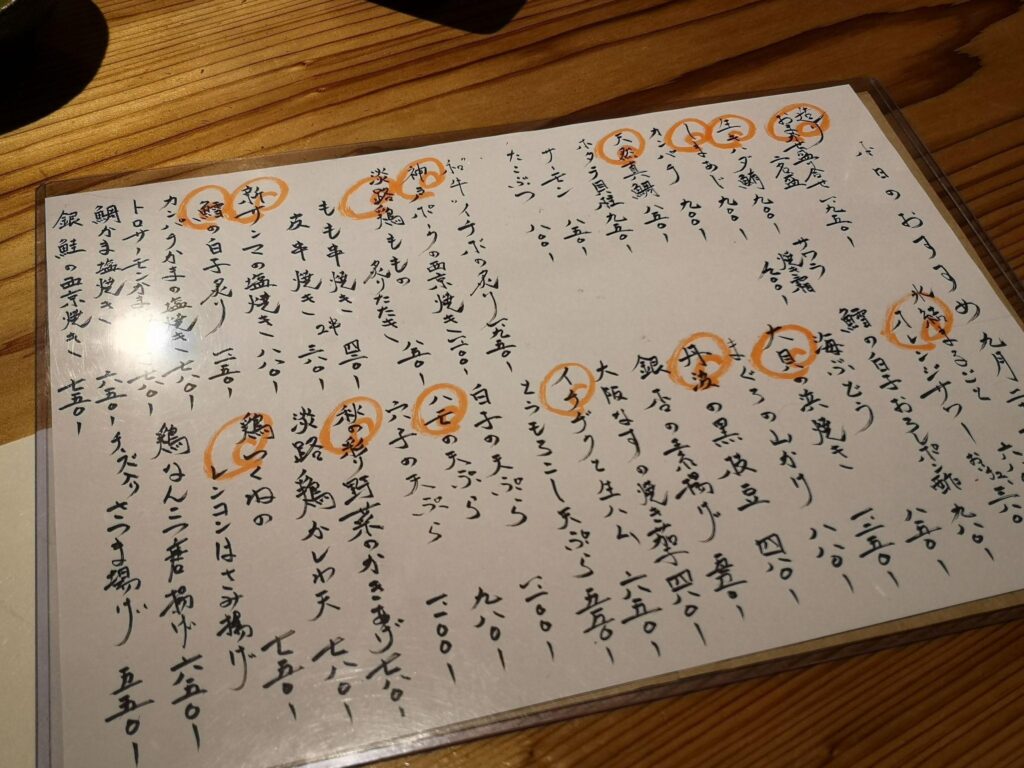 本日のおすすめ
九月二
造り
お茶盆合せ 六点盛 一八五〇-
生本マグロ鮪 九〇〇-
しまあじ 九〇〇-
カンパチ 八五〇-
天然真鯛 八五〇-
ホタテ貝柱 九五〇-
サーモン 八五〇-
たこぶつ 八〇-
サワラ
焼霜
和牛イチボの炙り 一八五〇-
神戸ポークの西京焼き 一二〇〇-
淡路鶏ももの
炙りたたき 八五〇-
もも串焼き 四三〇-
皮串焼き 2本 三六〇-
新サンマの塩焼き 八八〇-
鱈の白子炙り 一三五〇-
カンパチかまの塩焼き 七八〇-
トロサーモンかま
鯛かま塩焼き 六五〇-
銀鮭の西京焼き 七五〇-
氷結まるごと
レモンサワー
鱈の白子おろしポン酢 九八〇-
海ぶどう 八五〇-
大貝の浜焼き 一三五〇-
まぐろの山かけ 八八〇-
丹波の黒枝豆 四八〇-
銀杏の素揚げ 五五〇-
大阪なすの焼き茄子 四八〇-
イチヂクと生ハム 六五〇-
とうもろこし天ぷら 五五〇-
白子の天ぷら 一二〇〇-
穴子の天ぷら 九八〇-
ハモの天ぷら 一二〇〇-
秋の彩り野菜のかき揚げ 七八〇-
淡路鶏かしわ天 七八〇-
鶏つくねの
レンコンはさみ揚げ 七五〇-
鶏なんこつ唐揚げ 六五〇-
チーズ入りさつま揚げ 五五〇-